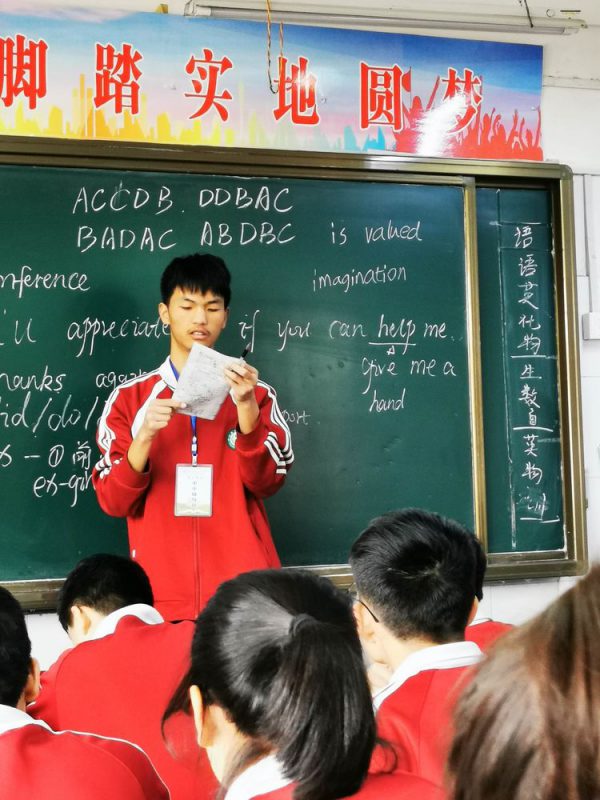 脚踏实地圆梦
ACCDB DDBAC
BADAC ABDBC is valued
nference imagination
'll appreciate if you can help me
hanks give me a
id/do/ hand
- ① 前
ex-
语
语
英
化
物
生
数
自
英
物